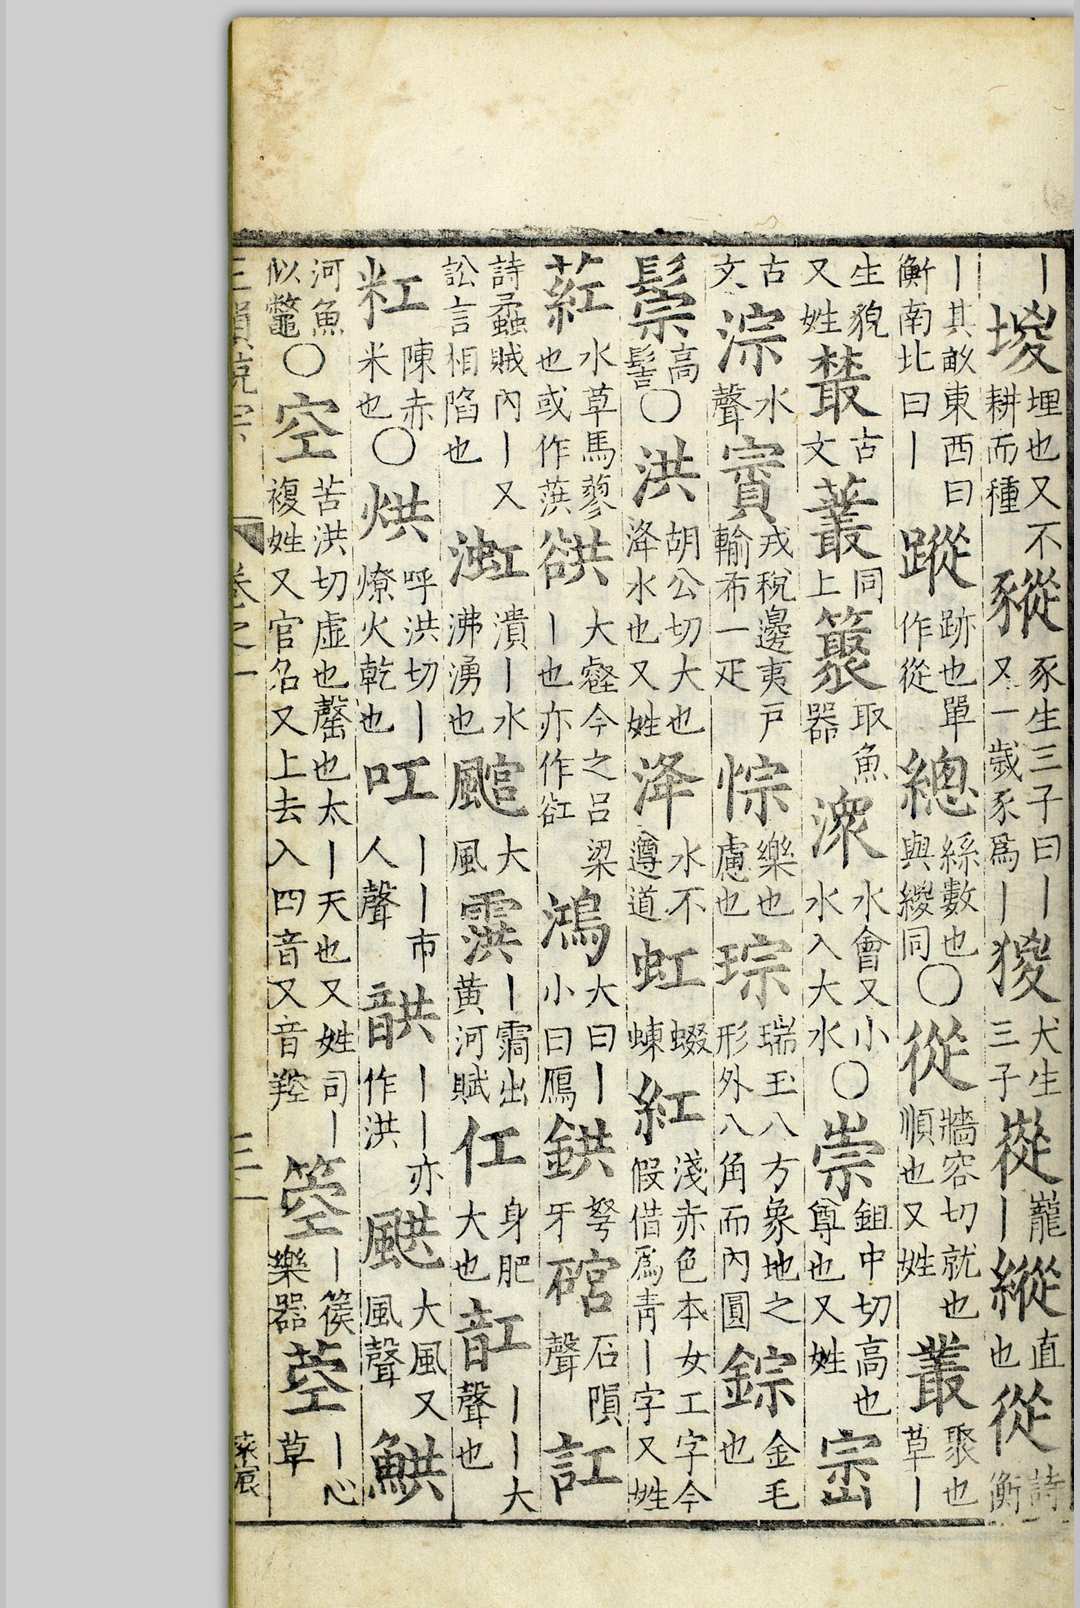 丨堫埋也又不耕而種豵豕生三子曰丨又一歲豕爲丨猣犬生三子嵸巃丨縱直也從詩衡
丨其畝東西曰衡南北曰丨蹤跡也單作從總絲數也與緵同〇從牆容切就也順也又姓叢聚也草丨
生貌又姓䕺古文藂同上䉘取魚器潨水會又小水入大水〇崇鉏中切高也尊也又姓崈
古文淙水聲賨戎稅邊夷戶輸布一疋悰樂也慮也琮瑞玉八方象地之形外八角而內圓錝金毛也
鬃高髻〇洪胡公切大也洚水也又姓洚水不遵道虹蝃蝀紅淺赤色本女工字今假借爲靑丨字又姓
葒水草馬蓼也或作葓谼大壑今之呂梁丨也亦作𧮬鴻大曰丨小曰鴈鉷弩牙硿石隕聲訌
詩蟊賊內丨又訟言相陷也渱潰丨水沸湧也䬝大風霟丨霩出黃河賦仜身肥大也䪦丨丨大聲也
粠陳赤米也〇烘呼洪切丨燎火乾也吅丨丨市人聲䪦丨丨亦作洪颫大風又風聲魟
河魚似鼈〇空苦洪切虛也罄也太丨天也又姓司丨複姓又官名又上去入四音又音羫箜丨篌樂器䓖丨心草
三韻兌宗 卷之一 三